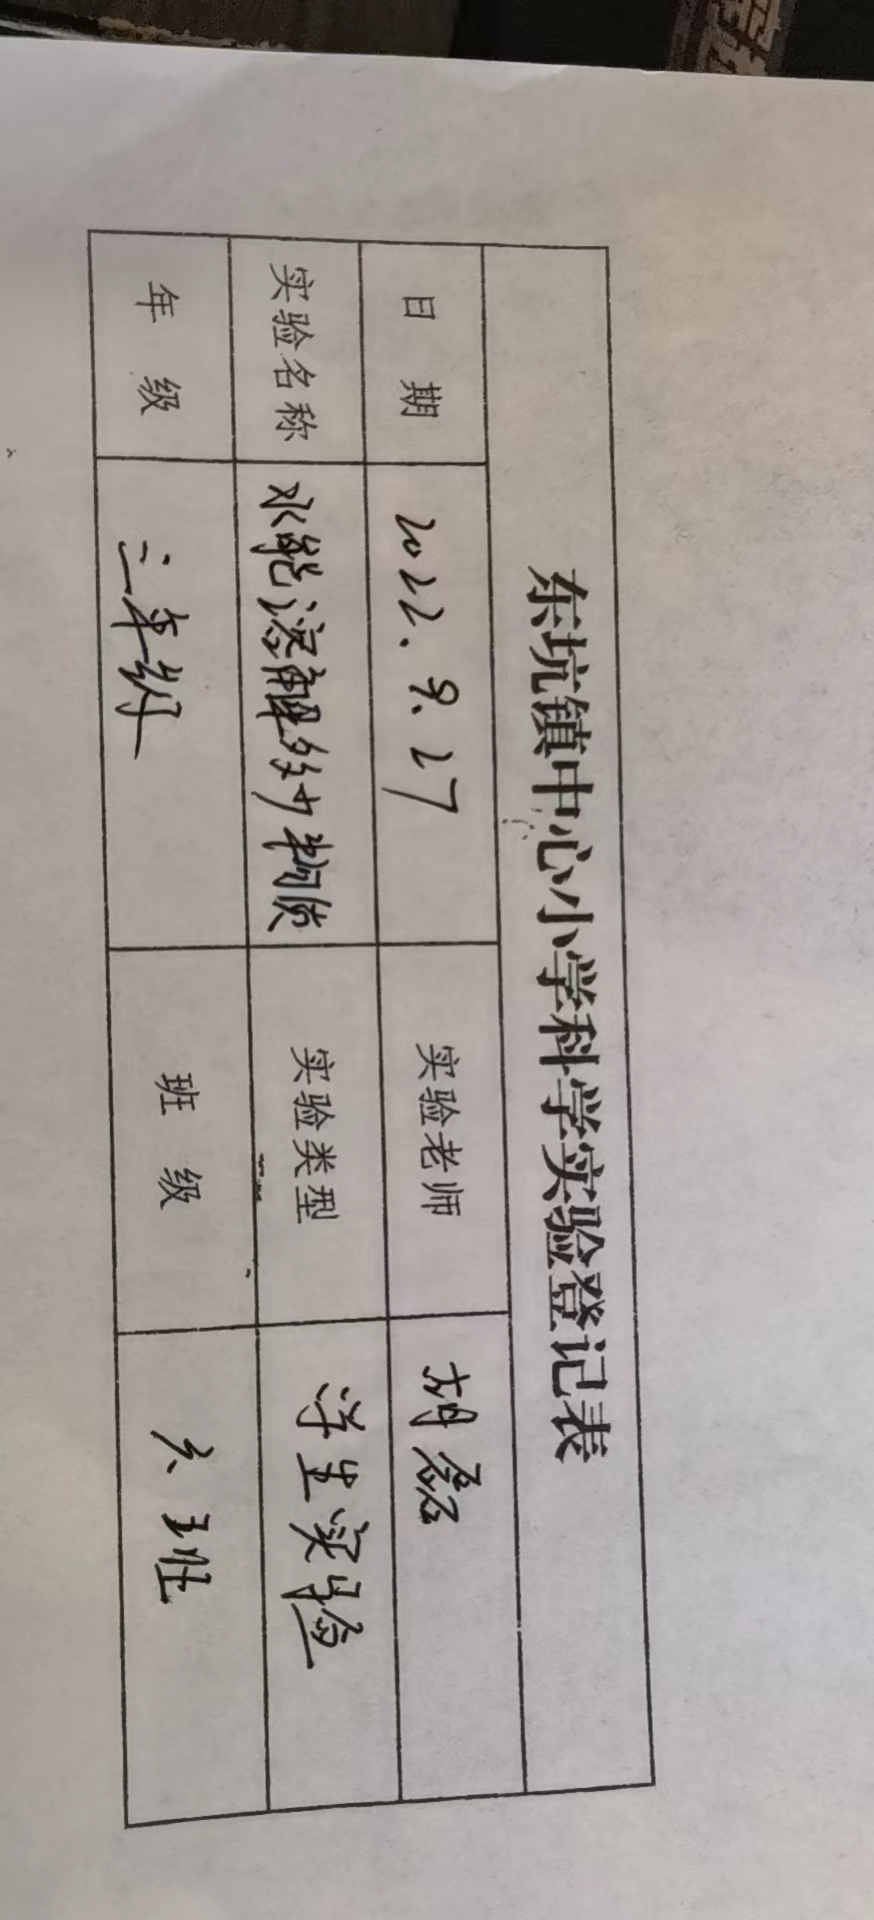 东坑镇中心小学科学实验登记表
日期 2022.9.27 实验老师 胡磊
实验名称 水能溶解多少物质 实验类型 学生实验
年级 三年级 班级 六班